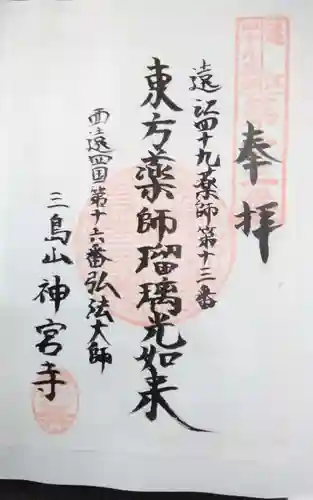 奉拝
遠江四十九薬師第十三番
東方薬師瑠璃光如来
西遠四国第十六番弘法大師
三島山神宮寺